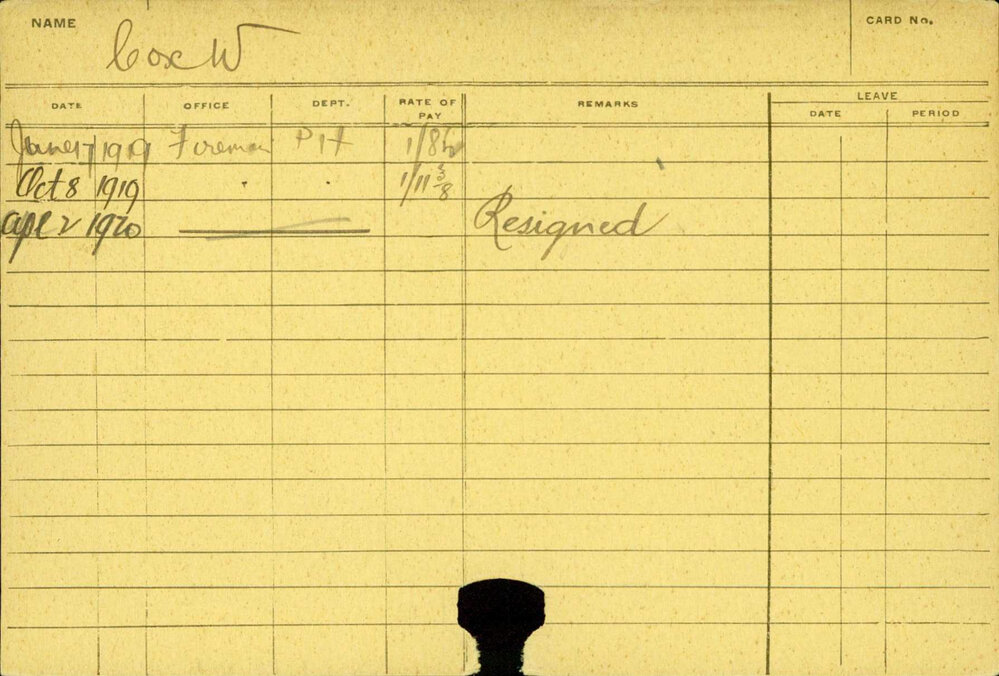 NAME Cox W CARD No.
DATE OFFICE DEPT. RATE OF PAY REMARKS LEAVE
DATE PERIOD
June 17 1919 Fireman P H
Oct 8 1919 " " 1/11 3/8
Apl 2 1920 Resigned